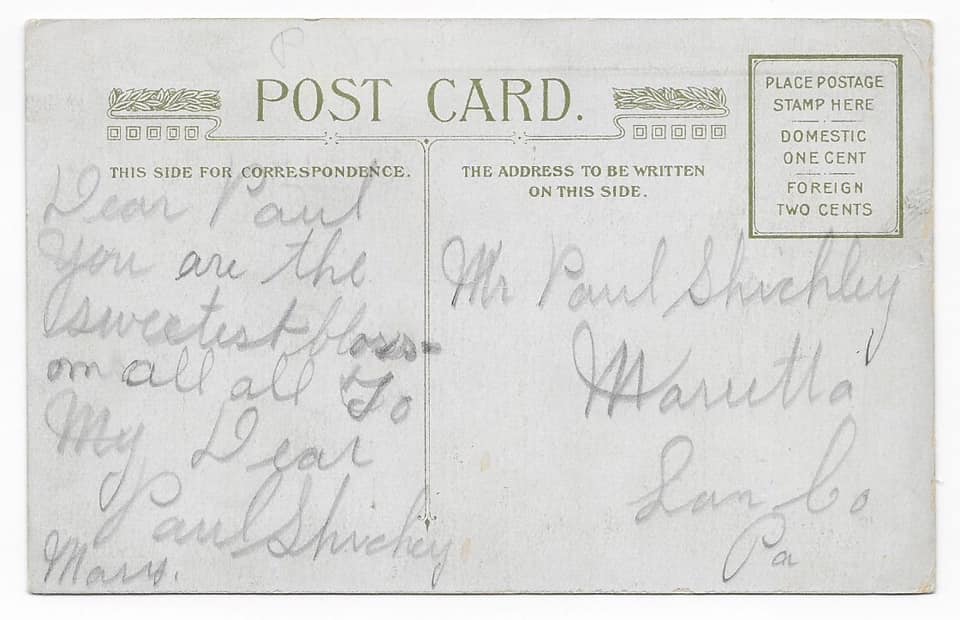 POST CARD.
PLACE POSTAGE
STAMP HERE
DOMESTIC
ONE CENT
FOREIGN
TWO CENTS
THIS SIDE FOR CORRESPONDENCE.
Dear Paul
You are the
sweetest bloss-
om all all To
My Dear
Paul
THE ADDRESS TO BE WRITTEN
ON THIS SIDE.
Mr Paul Shichley
Marietta
Lan Co
Pa